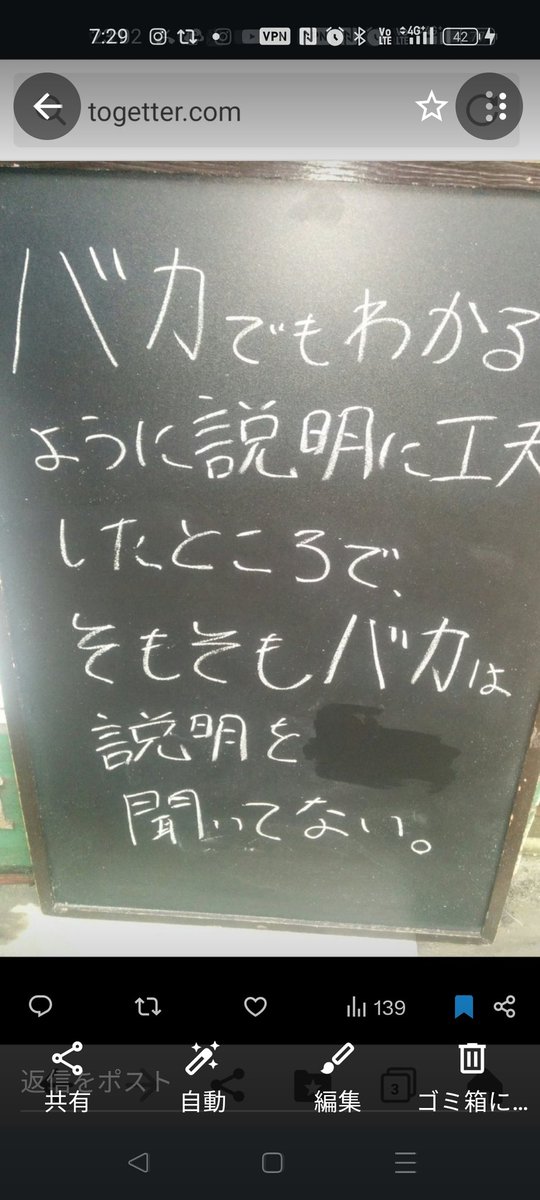 7:29 VPN Vo LTE 4G+ 42
togetter.com
バカでもわかる
ように説明に工夫
したところで、
そもそもバカは
説明を
聞いてない。
139
返信をポスト
3
共有 自動 編集 ゴミ箱に...